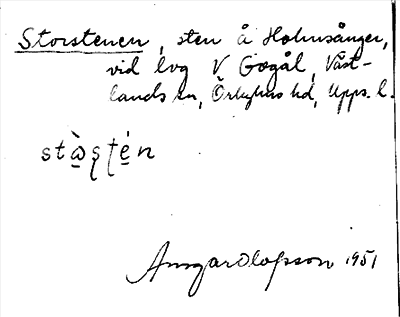 Storstenen, sten å Holmsånger,
vid lvg V Gogål, Väst-
lands sn, Örbyhus hd, Upps. l.
Ansgar Olofsson 1951